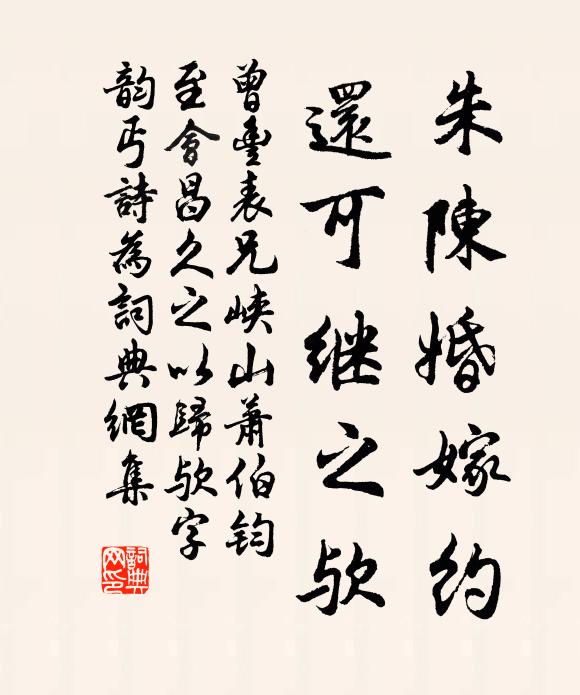 朱陳婚嫁約
還可继之欤
曾豐表兄峡山蕭伯鈞
至會昌久之以歸欤字
韵丐詩為詞典網集
詞典网印